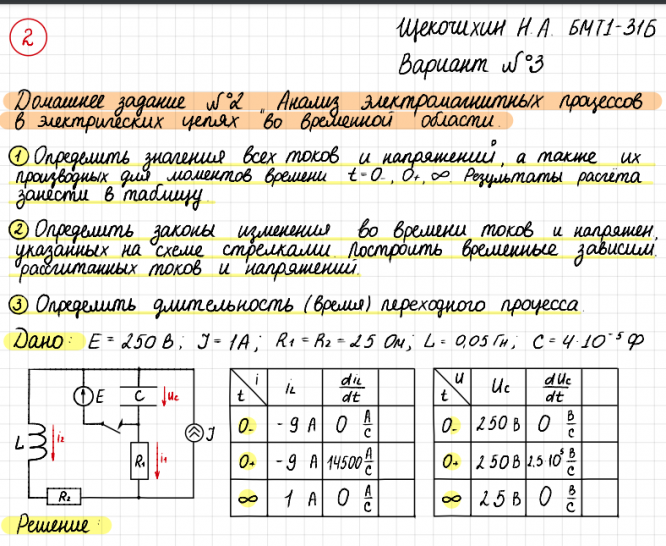 2
Щекочихин Н.А. БМТ1-31Б
Вариант №3
Домашнее задание №2 "Анализ электромагнитных процессов
в электрических цепях" во временной области.
1 Определить значения всех токов и напряжений, а также их
производных для моментов времени t=0-, 0+, ∞. Результаты расчёта
занести в таблицу.
2 Определить законы изменения во времени токов и напряжен.
указанных на схеме стрелками. Построить временные зависим.
рассчитанных токов и напряжений.
3 Определить длительность (время) переходного процесса.
Дано: E = 250 В; J = 1А; R1 = R2 = 25 Ом; L = 0,05 Гн; C = 4·10⁻⁵ Ф
E C uc
L i2 R1 i1 J
R2
t i iL diL/dt
0- -9 А 0 А/с
0+ -9 А 14500 А/с
∞ 1 А 0 А/с
t u Uc dUc/dt
0- 250 В 0 В/с
0+ 250 В 2.5·10⁵ В/с
∞ 25 В 0 В/с
Решение: